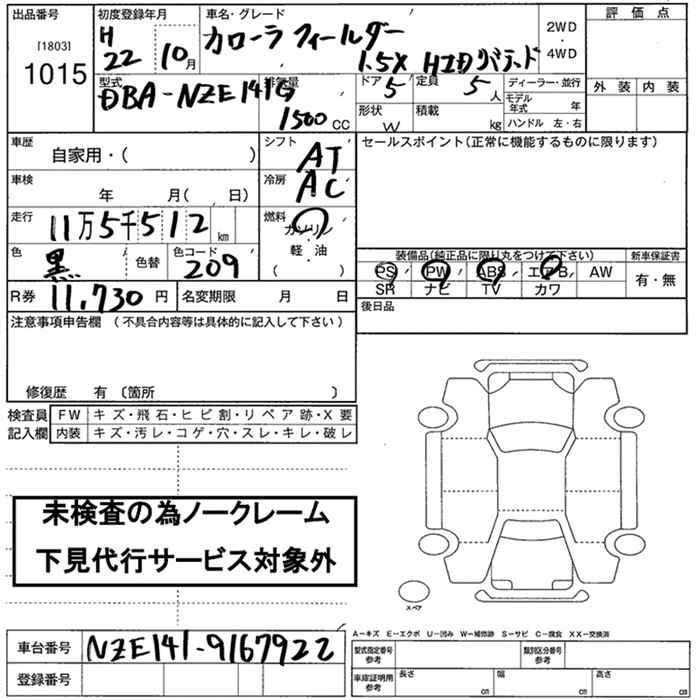 出品番号 初度登録年月 車名・グレード 評価点
[1803] H カローラ フィールダー 2WD
1015 22 10月 1.5X HIDリミテッド 4WD
型式 排気量 ドア 定員 ディーラー・並行 外装 内装
DBA-NZE141G 5 5人 モデル年式 年
1500 CC 形状 W 積載 kg ハンドル 左・右
車歴 シフト セールスポイント(正常に機能するものに限ります)
自家用・( ) AT
車検 冷房
年 月( 、日) AC
走行 燃料
11万5千512km ガソリン
色 色替 色コード 軽・油 装備品(純正品に限り丸をつけて下さい) 新車保証書
黒 209 ( ) PS PW ABS エアB AW 有・無
SR ナビ TV カワ
R券 11,730円 名変期限 月 日 後日品
注意事項申告欄 (不具合内容等は具体的に記入して下さい)
修復歴 有 〔箇所 〕
検査員 FW キズ・飛石・ヒビ割・リペア跡・X要
記入欄 内装 キズ・汚レ・コゲ・穴・スレ・キレ・破レ
未検査の為ノークレーム
下見代行サービス対象外
スペア
A−キズ E−エクボ U−凹み W−補修跡 S−サビ C−腐食 XX−交換済
車台番号 NZE141-9167922 型式指定番号 参考 類別区分番号 参考
登録番号 車庫証明用 参考 長さ cm 幅 cm 高さ cm